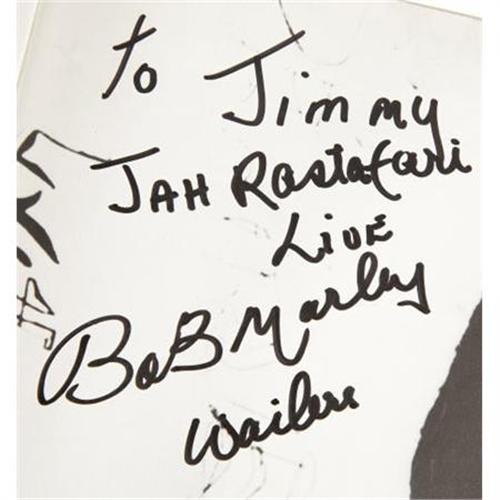 to Jimmy
JAH Rastafari
Live
Bob Marley
Wailers